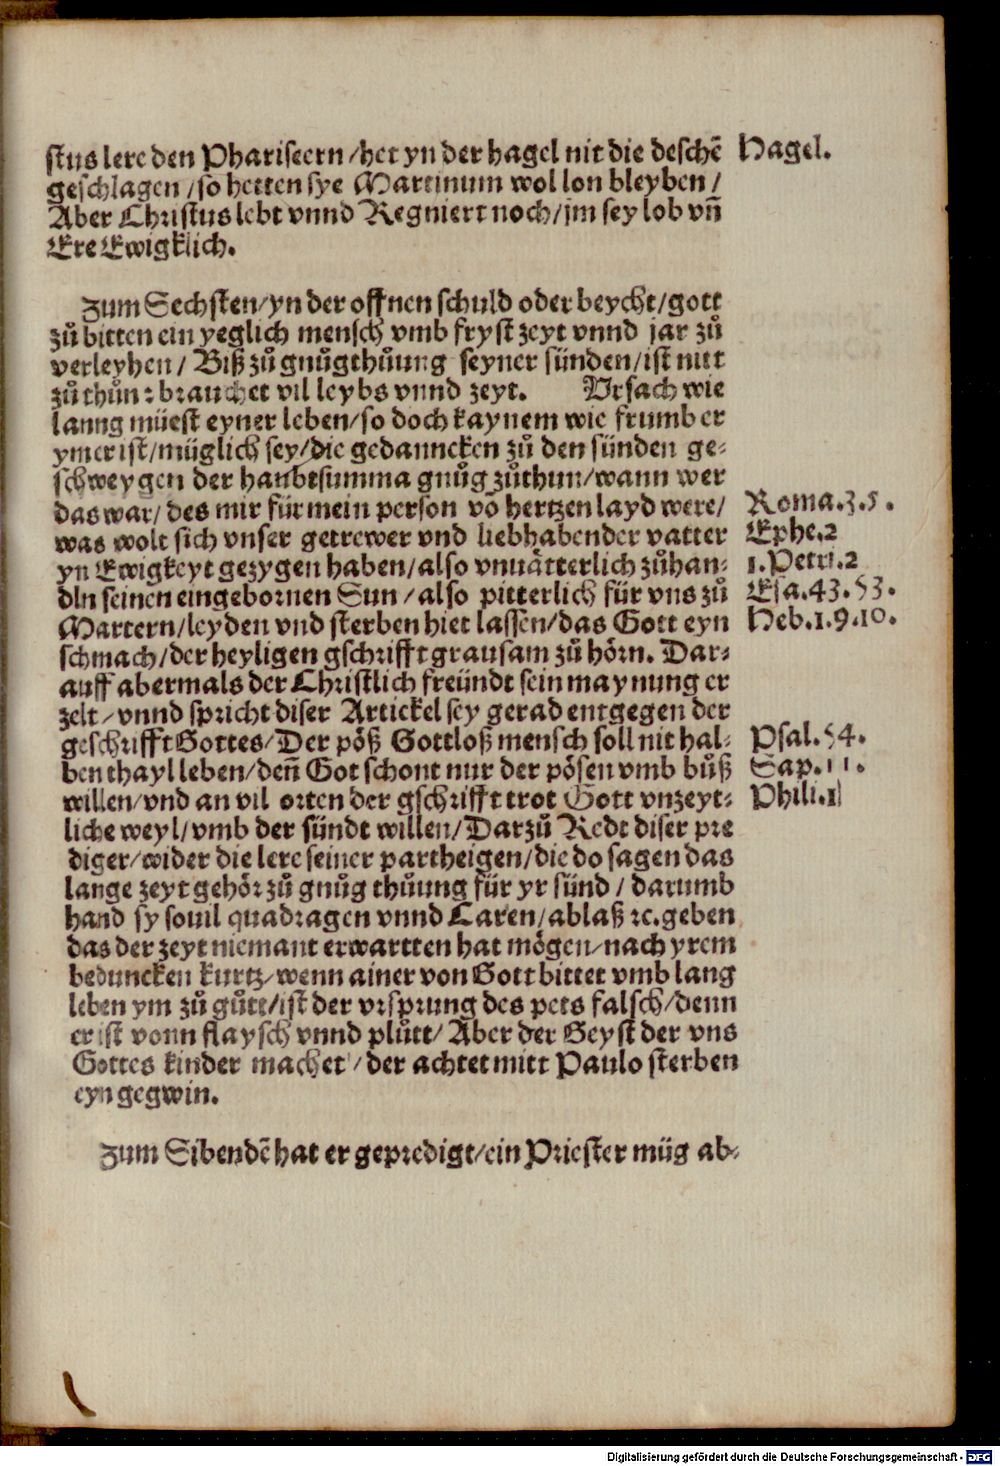 stus lere den Phariseern / het yn der hagel nit die deschē Hagel.
geschlagen / so hetten sye Martinum wol lon bleyben /
Aber Christus lebt vnnd Regniert noch / jm sey lob vn̄
Ere Ewigklich.
Zum Sechsten / yn der offnen schuld oder beycht / gott
zů bitten ein yeglich mensch vmb fryst zeyt vnnd jar zů
verleyhen / Biß zů gnůgthůung seyner sünden / ist nitt
zůthůn : brauchet vil leybs vnnd zeyt. Vrsach wie
lanng müest eyner leben / so doch kaynem wie frumb er
ymer ist / müglich sey / die gedanncken zů den sünden ge⸗
schweygen der haubtsumma gnůg zůthun / wann wer
das war / des mir für mein person vō hertzen layd were / Roma.3.5.
was wolt sich vnser getrewer vnd liebhabender vatter Ephe.2
yn Ewigkeyt gezygen haben / also vnuätterlich zůhan⸗ 1.Petri.2
dln seinen eingebornen Sun / also pitterlich für vns zů Esa.43.53.
Martern / leyden vnd sterben hiet lassen / das Gott eyn Heb.1.9.10.
schmach / der heyligen gschrifft grausam zů hörn. Dar⸗
auff abermals der Christlich freündt sein maynung er
zelt / vnnd spricht diser Artickel sey gerad entgegen der
geschrifft Gottes / Der pöß Gottloß mensch soll nit hal⸗ Psal.54.
ben thayl leben / den̄ Got schont nur der pösen vmb bůß Sap.11.
willen / vnd an vil orten der gschrifft trot Gott vnzeyt⸗ Phili.1
liche weyl / vmb der sündt willen / Darzů Redt diser pre
diger / wider die lere seiner partheigen / die do sagen das
lange zeyt gehör zů gnůg thůung für yr sünd / darumb
hand sy souil quadragen vnnd Caren / ablaß ꝛc. geben
das der zeyt niemant erwartten hat mögen / nach yrem
beduncken kurtz / wenn ainer von Gott bittet vmb lang
leben ym zů gůtt / ist der vrsprung des pets falsch / denn
er ist vonn flaysch vnnd plůtt / Aber der Geyst der vns
Gottes kinder machet / der achtet mitt Paulo sterben
eyn gegwin.
Zum Sibendē hat er gepredigt / ein Priester müg ab⸗
Digitalisierung gefördert durch die Deutsche Forschungsgemeinschaft - DFG